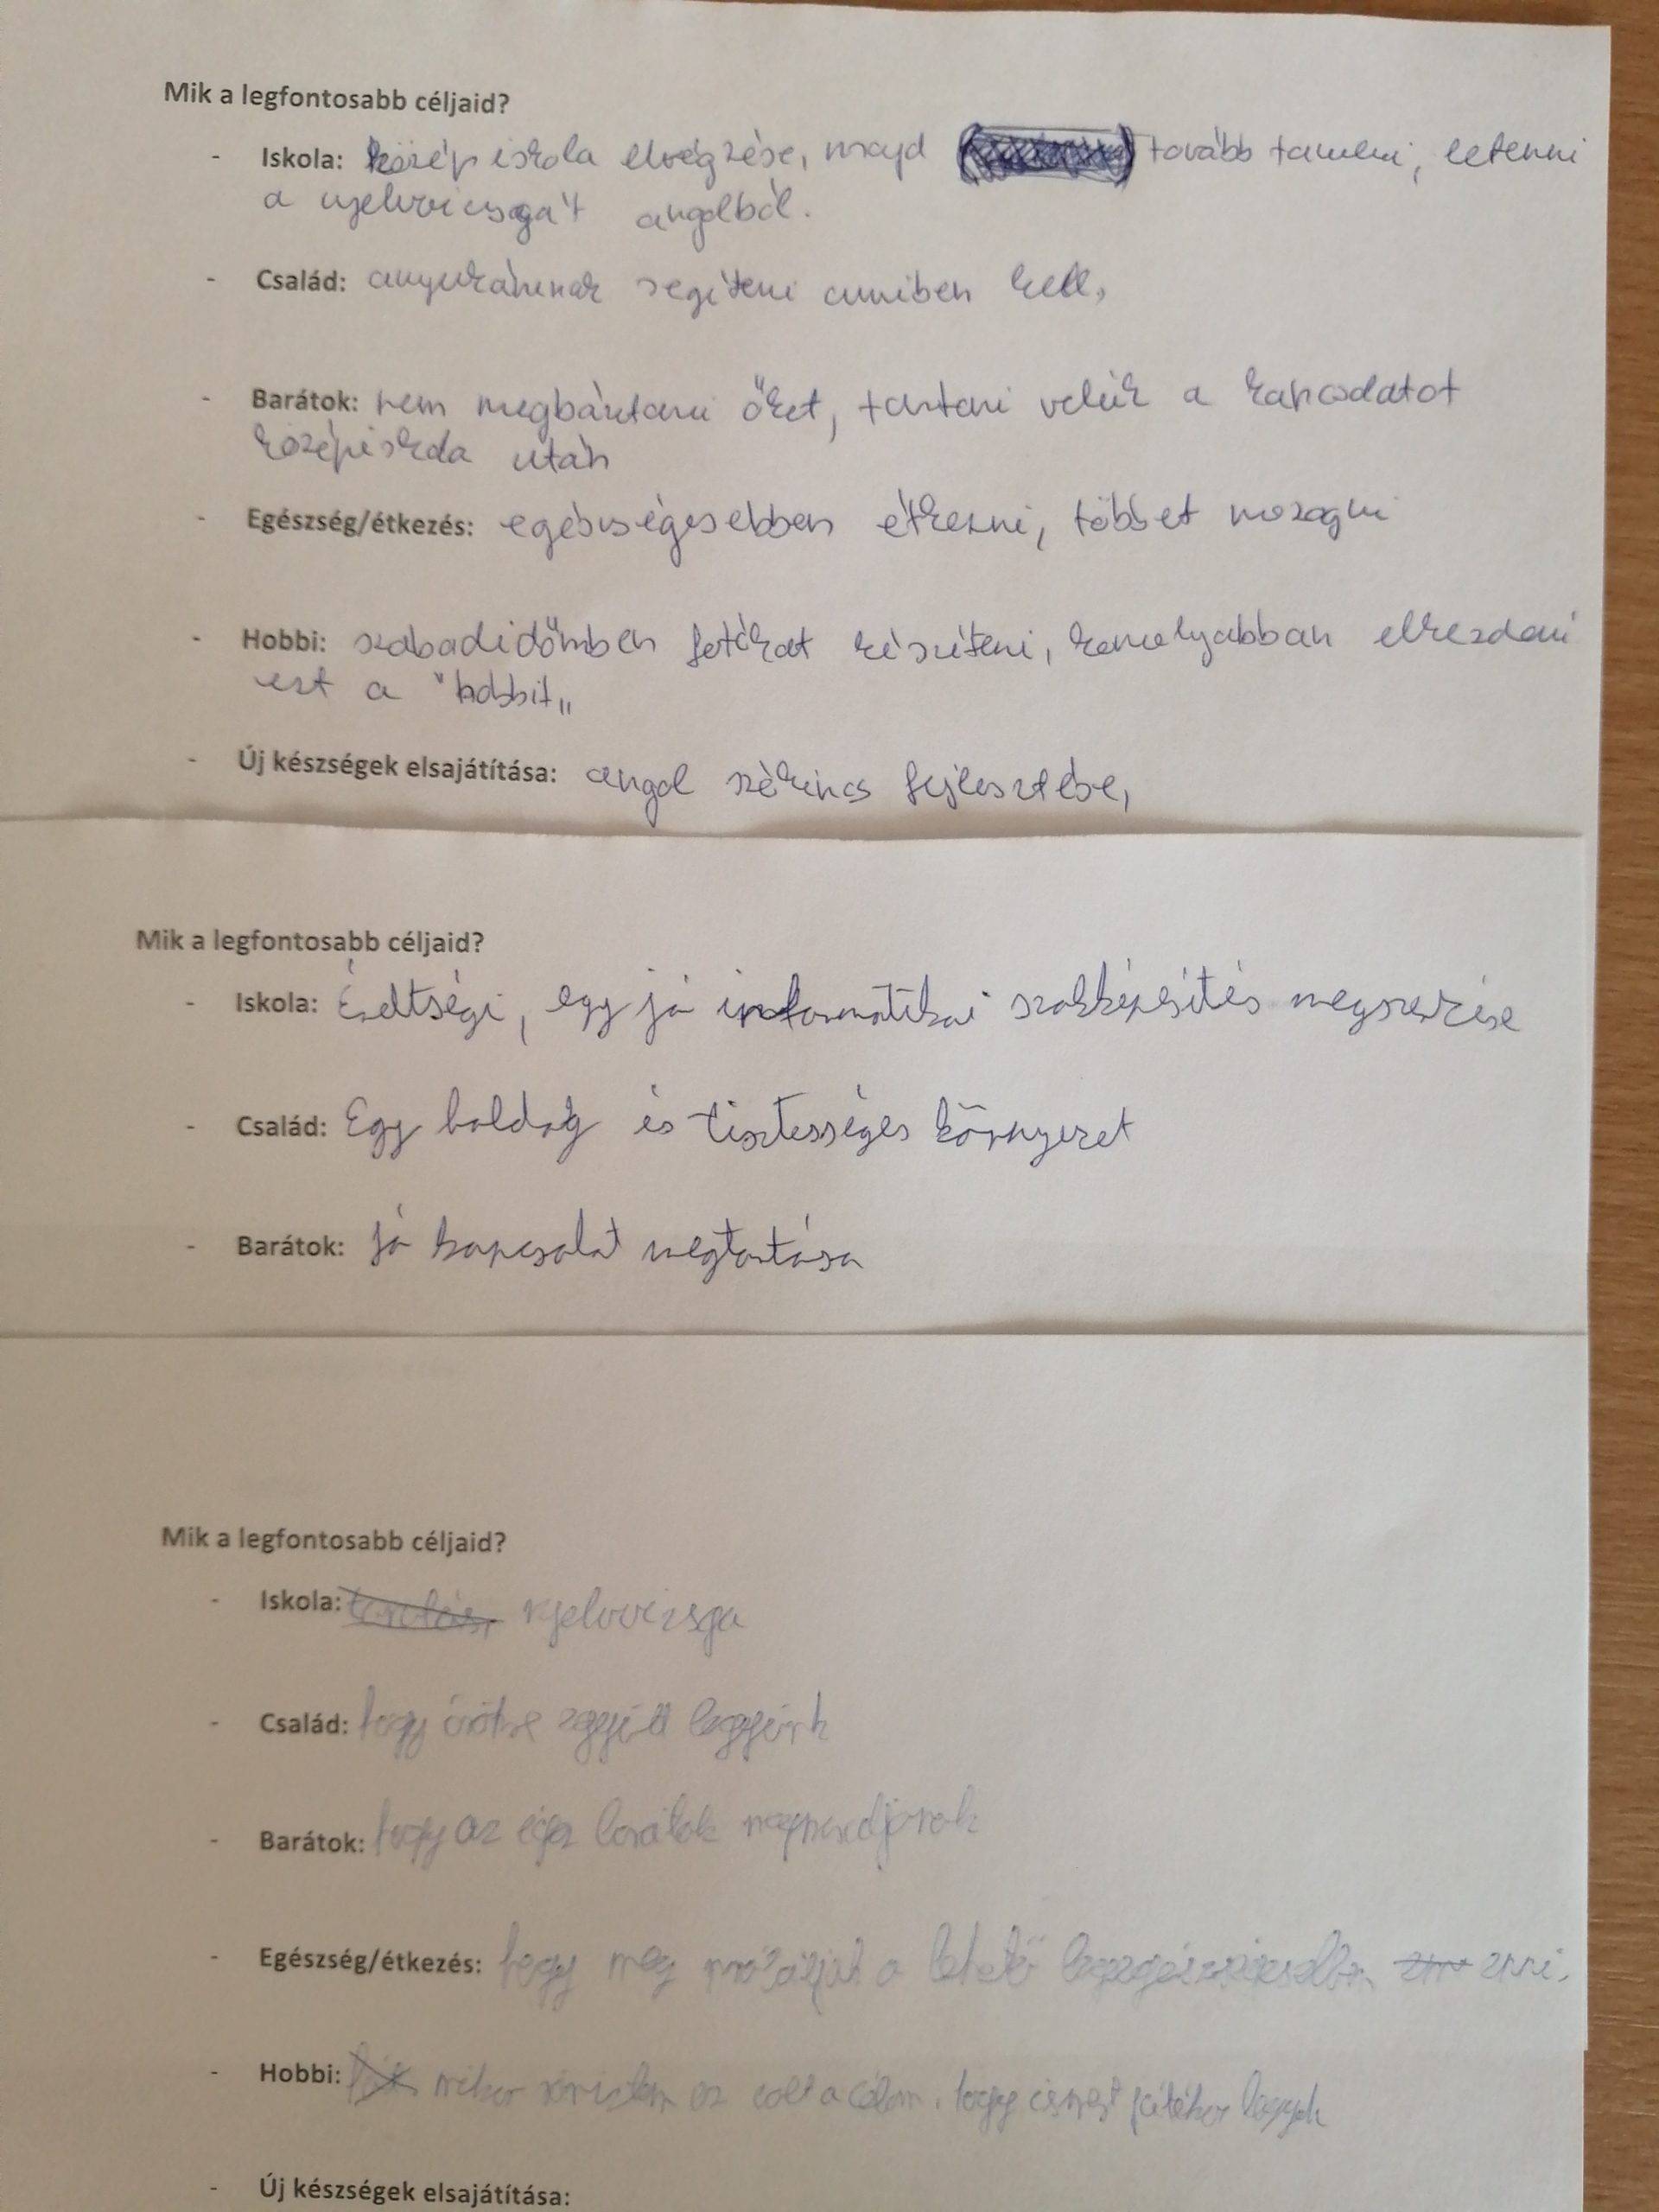 Mik a legfontosabb céljaid?
- Iskola: középiskola elvégzése, majd tovább tanulni, letenni
a nyelvvizsgát angolból.
- Család: anyukámnak segíteni amiben kell,
- Barátok: nem megbántani őket, tartani velük a kapcsolatot
középiskola után
- Egészség/étkezés: egészségesebben étkezni, többet mozogni
- Hobbi: szabadidőmben fotókat készíteni, komolyabban elkezdeni
ezt a "hobbit"
- Új készségek elsajátítása: angol szókincs fejlesztése,
Mik a legfontosabb céljaid?
- Iskola: Érettségi, egy jó informatikai szakképesítés megszerzése
- Család: Egy boldog és tisztességes környezet
- Barátok: Jó kapcsolat megtartása
Mik a legfontosabb céljaid?
- Iskola: nyelvvizsga
- Család: hogy örökre együtt legyünk
- Barátok: hogy az igaz barátok megmaradjanak
- Egészség/étkezés: hogy meg próbáljak a lehető legegészségesebben enni.
- Hobbi: mikor az volt a célom, hogy ismert játékos legyek
- Új készségek elsajátítása: